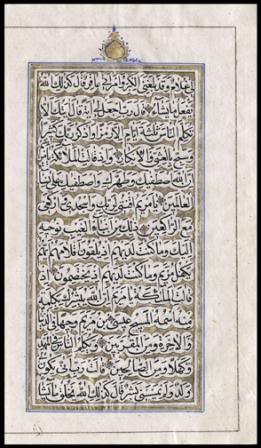 لى غلام وقد بلغنى الكبر وامرأتى عاقر قال كذلك الله
يفعل ما يشاء قال رب اجعل لى اية قال ايتك الا
تكلم الناس ثلثة ايام الا رمزا واذكر ربك كثيرا
وسبح بالعشى والابكار واذ قالت الملائكة يا مريم
ان الله اصطفيك وطهرك واصطفيك على نساء
العالمين يا مريم اقنتى لربك واسجدى واركعى
مع الراكعين ذلك من انباء الغيب نوحيه
اليك وما كنت لديهم اذ يلقون اقلامهم ايهم
يكفل مريم وما كنت لديهم اذ يختصمون اذ
قالت الملائكة يا مريم ان الله يبشرك بكلمة
منه اسمه المسيح عيسى بن مريم وجيها فى الدنيا
والاخرة ومن المقربين ويكلم الناس فى المهد
وكهلا ومن الصالحين قالت رب انى يكون لى
ولد ولم يمسسنى بشر قال كذلك الله يخلق ما يشاء